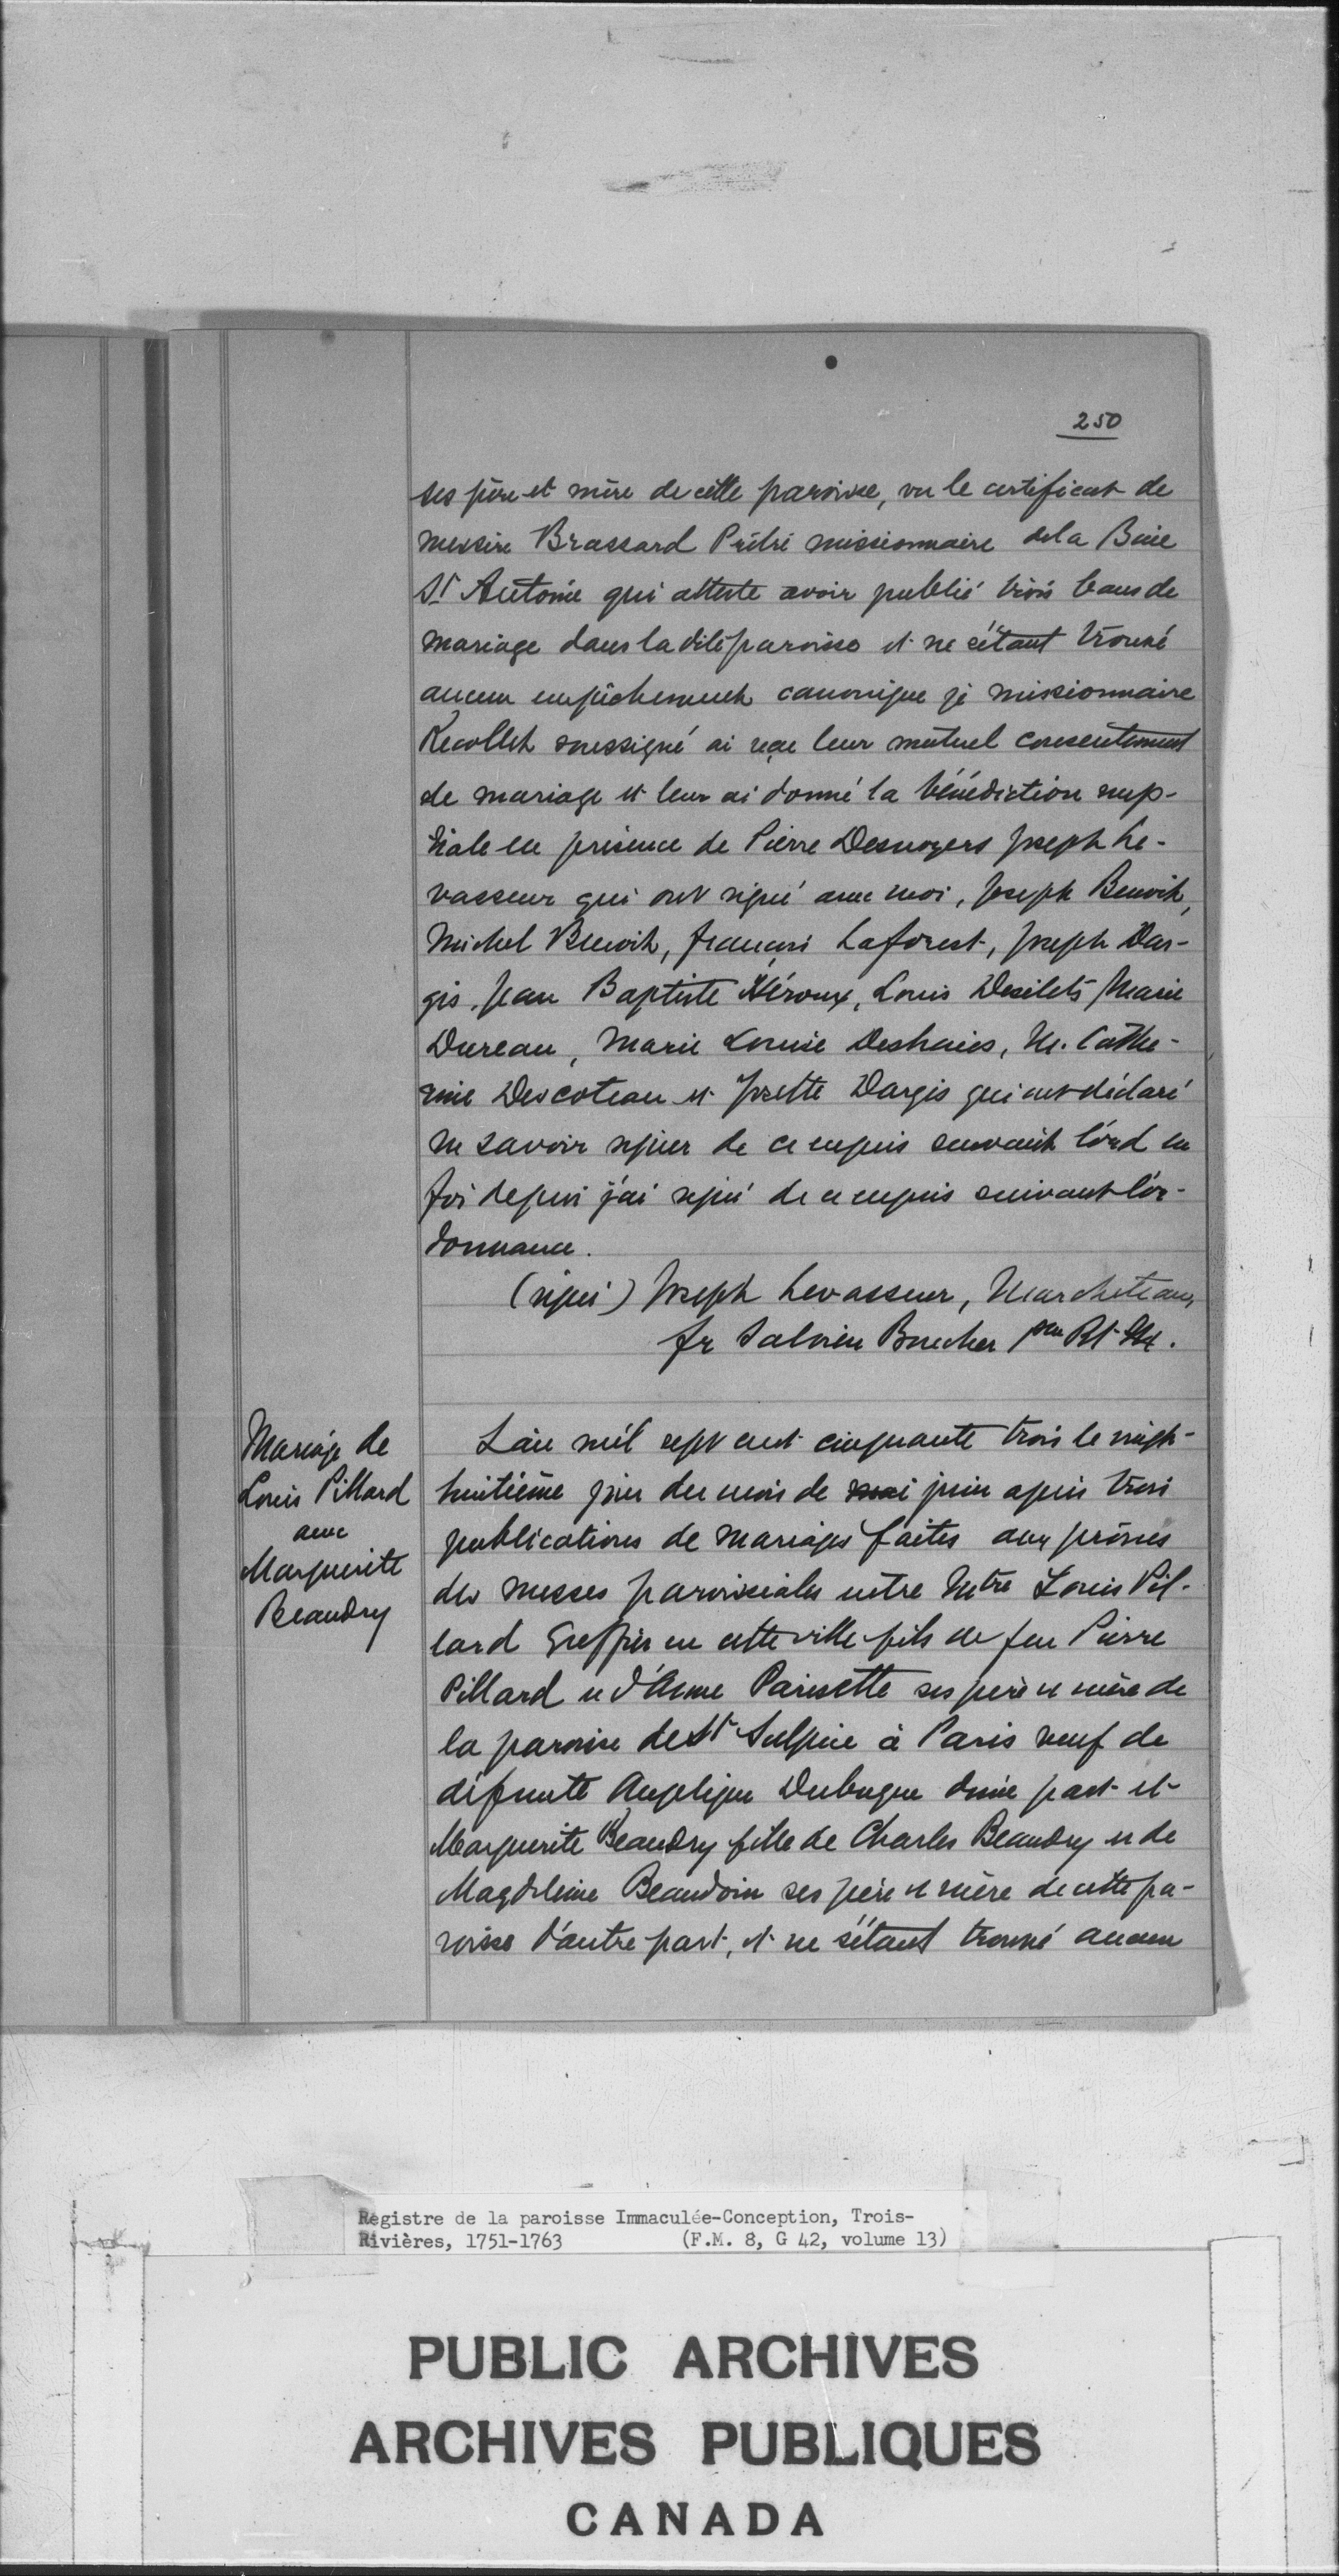 250
ses père et mère de cette paroisse, vu le certificat de
messire Brassard Prêtre missionnaire de la Baie
St Antoine qui atteste avoir publié trois bans de
mariage dans la dite paroisse et ne s'étant trouvé
aucun empêchement canonique je missionnaire
Recollet soussigné ai reçu leur mutuel consentement
de mariage et leur ai donné la bénédiction nup-
tiale en présence de Pierre Desnoyers Joseph Le-
vasseur qui ont signé avec moi, Joseph Benoit,
Michel Benoit, françois Laforest, Joseph Dar-
gis, Jean Baptiste Héroux, Louis Desilets Marie
Dureau, Marie Louise Deshaies, M. Cathe-
rine Descoteau et Josette Dargis qui ont déclaré
ne savoir signer de ce enquis suivant l'ord en
foi de quoi j'ai signé de ce enquis suivant l'or-
donnance.
(signé) Joseph Levasseur, Marcheteau,
fr Salvien Boucher Rt
Mariage de
Louis Pillard
avec
Marguerite
Beaudry
L'an mil sept cent cinquante trois le vingt-
huitième jour du mois de mai juin après trois
publications de mariages faites aux prônes
des messes paroissiales entre Mtre Louis Pil-
lard Greffier en cette ville fils de feu Pierre
Pillard et d'Anne Parisette ses père et mère de
la paroisse de St Sulpice à Paris veuf de
défunte Angelique Dubuque d'une part et
Marguerite Beaudry fille de Charles Beaudry et de
Magdeleine Beaudoin ses père et mère de cette pa-
roisse d'autre part, et ne s'étant trouvé aucun
Registre de la paroisse Immaculée-Conception, Trois-
Rivières, 1751-1763 (F.M. 8, G 42, volume 13)
PUBLIC ARCHIVES
ARCHIVES PUBLIQUES
CANADA